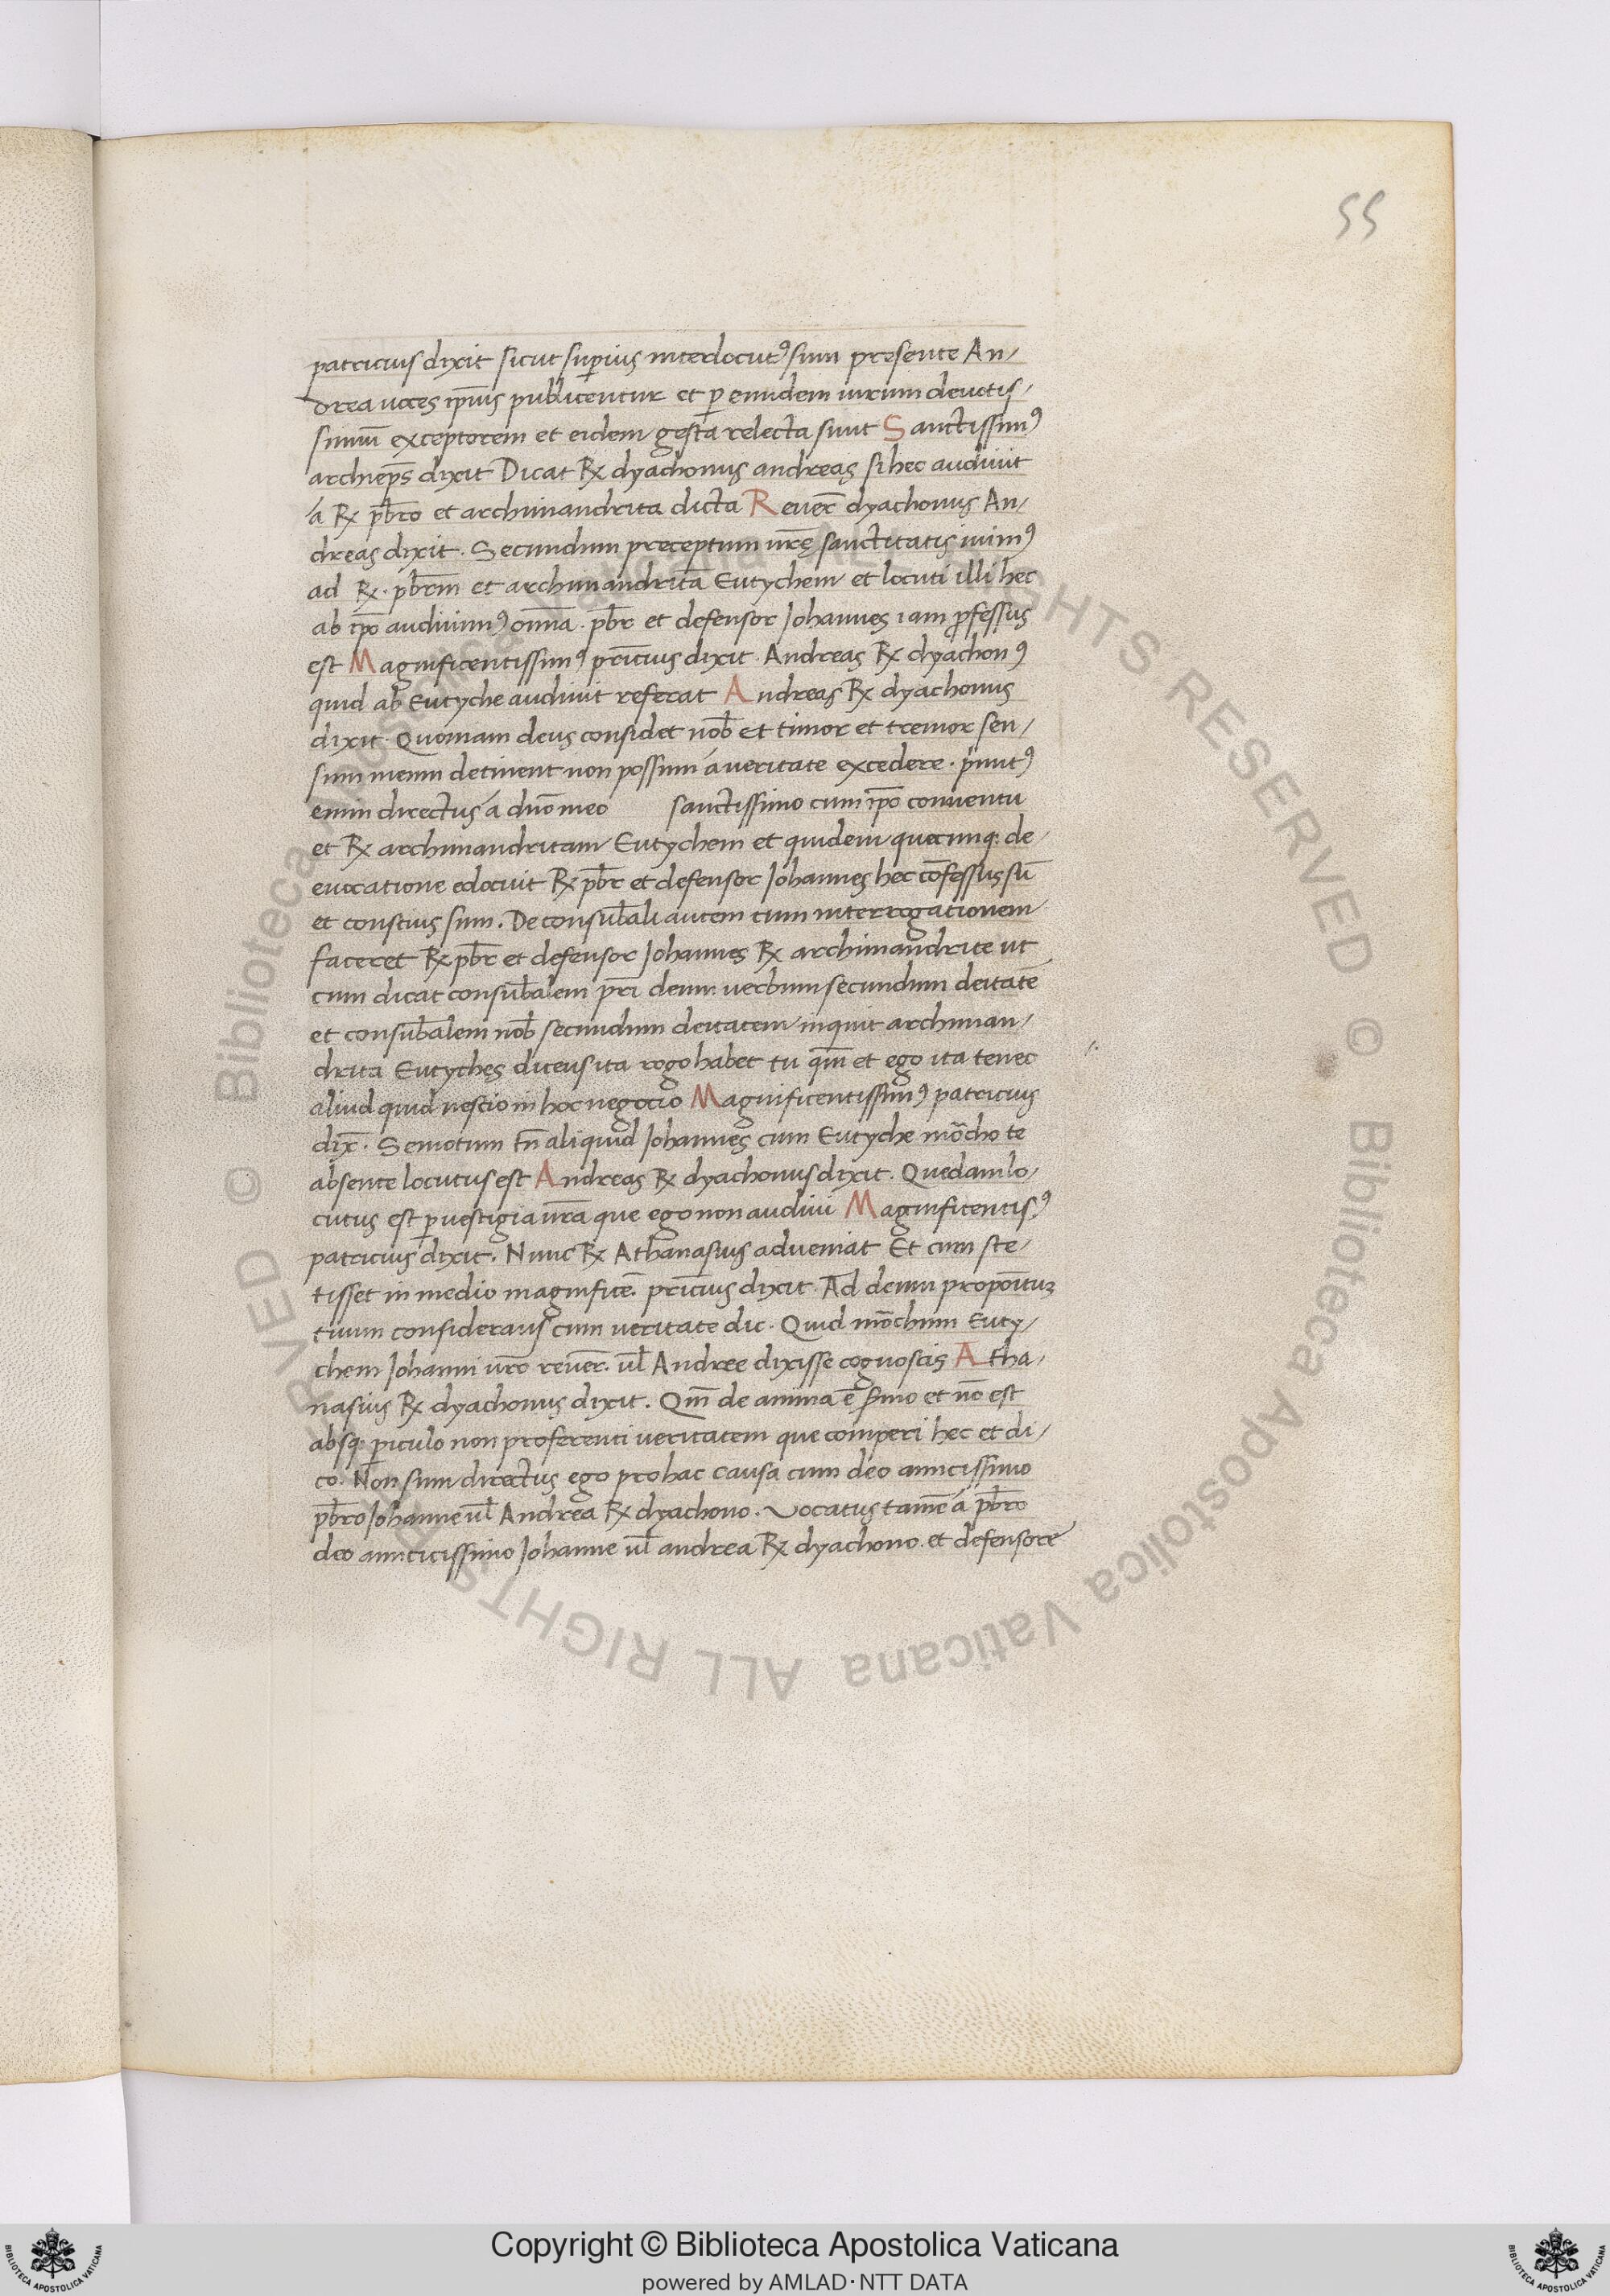 55
patricius dixit sicut superius interlocutꝰ sum presente An-
drea voces ip̄ius publicentur et ꝑ eundem uirum deuotis-
simū exceptorem et eidem gesta relecta sunt Sanctissimꝰ
archiep̄s dixit Dicat R̨ dyachonus andreas si hec audiuit
á R̨ pb̄ro et archimandrita dicta Reuer̄ dyachonus An-
dreas dixit. Secundum preceptum ur̄ę sanctitatis iuimꝰ
ad R̨. pb̄rm et archimandritā Eutychem et locuti illi hec
ab ip̄o audiuimꝰ om̄ia. pb̄r et defensor Johannes iam ꝓfessus
est Magnificentissimꝰ pric̄ius dixit. Andreas R̨ dyachonꝰ
quid ab Eutyche audiuit referat Andreas R̨ dyachonus
dixit. Quoniam deus considet nob̄ et timor et tremor sen-
sum meum detinent non possum á ueritate excedere. pimutꝰ
enim directus á dn̄o meo sanctissimo cum ip̄o conuentu
et R̨ archimandritam Eutychem et quidem quecunq: de-
euocatione edocuit R̨ pb̄r et defensor Johannes hec cōfessus sū
et conscius sum. De consub̄ali autem cum interrogationem
faceret R̨ pb̄r et defensor Johannes R̨ archimandrite ut
cum dicat consub̄alem pr̄i deum uerbum secundum deitatē
et consub̄alem nob̄ secundum deitatem inquit archiman-
drita Eutyches dicens ita rogo habet tu qm̄ et ego ita teneo
aliud quid nescio in hoc negocio Magnificentissimꝰ patricius
dix̄. Semotum tn̄ aliquid Johannes cum Eutyche mōcho te
absente locutus est Andreas R̨ dyachonus dixit. Quedam lo-
cutus est ꝑ uestigia ur̄a que ego non audiui Magnificentisꝰ
patricius dixit. Nunc R̨ Athanasius adueniat Et cum ste-
tisset in medio magnificē. pric̄ius dixit. Ad deum propōitum
tuum considerans cum ueritate dic. Quid mōchum Euty-
chem Johanni ur̄o reuer̄. ul̄ Andree dixisse cognoscis Atha-
nasius R̨ dyachonus dixit. Qm̄ de anima ē ẜmo et nō est
absq: ꝑiculo non proferenti ueritatem que comperi hec et di-
co. Non sum directus ego pro hac causa cum deo amicissimo
pb̄ro Johanne ul̄ Andrea R̨ dyachono. Vocatus tamē á pb̄ro
deo amicicissimo Johanne ul̄ andrea R̨ dyachono. et defensore
© Biblioteca Apostolica Vaticana ALL RIGHTS RESERVED © Biblioteca Apostolica Vaticana ALL RIGHTS RESERVED
Copyright © Biblioteca Apostolica Vaticana
powered by AMLAD·NTT DATA
BIBLIOTECA APOSTOLICA VATICANA
BIBLIOTECA APOSTOLICA VATICANA